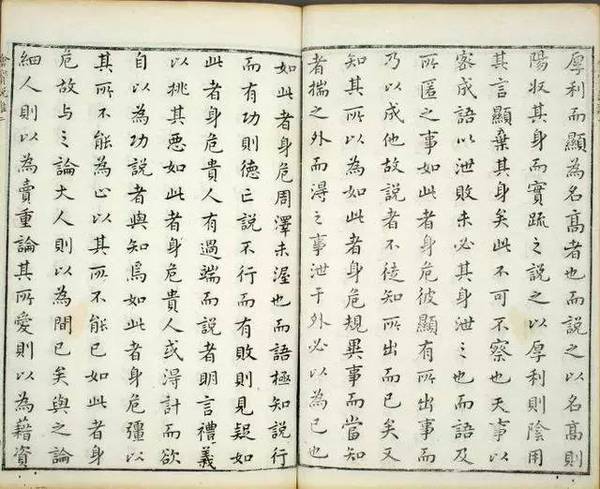 厚利而顯為名高者也而說之以名高則
陽収其身而實疏之說之以厚利則陰用
其言顯棄其身矣此不可不察也夫事以
密成語以泄敗未必其身泄之也而語及
所匿之事如此者身危彼顯有所出事而
乃以成他故說者不徒知所出而已矣又
知其所以為如此者身危規異事而當知
者揣之外而得之事泄于外必以為己也
如此者身危周澤未渥也而語極知說行
而有功則德亡說不行而有敗則見疑如
此者身危貴人有過端而說者明言禮義
以挑其惡如此者身危貴人或得計而欲
自以為功說者與知焉如此者身危彊以
其所不能為止以其所不能已如此者身
危故与之論大人則以為間已矣與之論
細人則以為賣重論其所愛則以為藉資